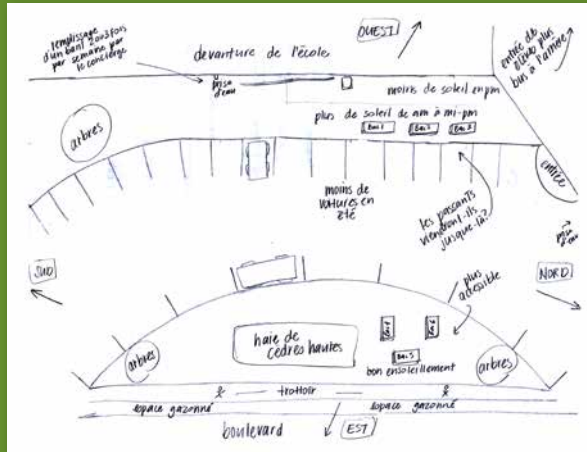 remplissage
d'un baril 2 ou 3 fois
par semaine par
le concierge
devanture de l'école
OUEST
entrée de
plus
bus à l'arrière
prise
d'eau
moins de soleil en pm
plus de soleil de am à mi-pm
Bac 1
Bac 2
Bac 3
arbres
entrée
moins de
voitures en
été
les passants
viendront-ils
jusque-là?
prise
d'eau
SUD
NORD
plus
accessible
haie de
cèdres hautes
Bac 4
Bac 6
Bac 5
bon ensoleillement
arbres
arbres
trottoir
espace gazonné
espace gazonné
boulevard
EST